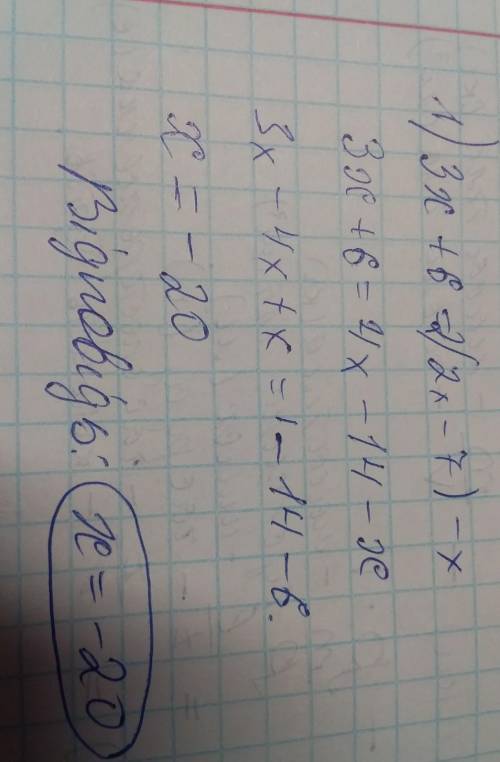 1) 3x + 6 = 2(2x - 7) - x
3x + 6 = 4x - 14 - x
3x - 4x + x = - 14 - 6.
x = - 20
Відповідь: x = -20